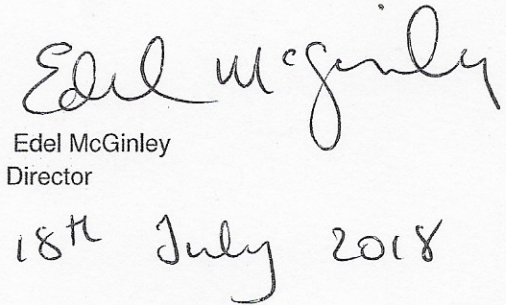 Edel McGinley
Edel McGinley
Director
18th July 2018